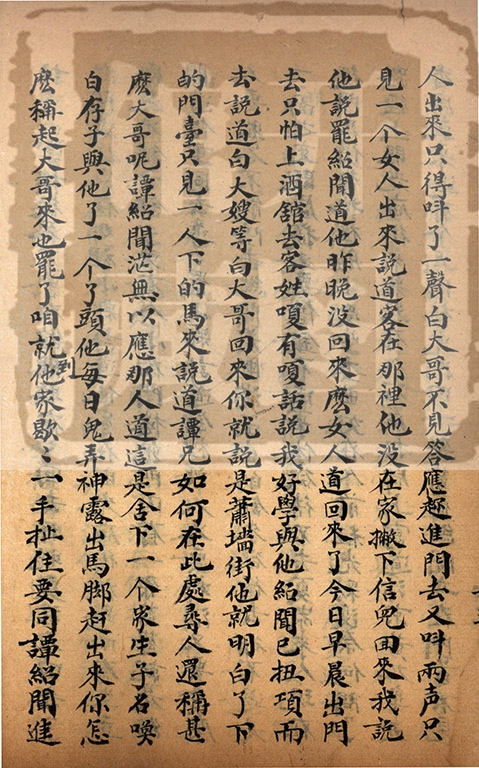 人出來只得呌了一聲白大哥不見答應趂進門去又呌兩声只
見一个女人出來說道客在那裡他没在家撇下信兒囬來我說
他說罷紹聞道他昨晚没回來麽女人道回來了今日早晨出門
去只怕上酒舘去客姓嗄有嗄話說我好學與他紹聞已扭項而
去說道白大嫂等白大哥回來你就說是蕭墻街他就明白了下
的門臺只見一人下的馬來說道譚兄如何在此處尋人還稱甚
麽大哥呢譚紹聞茫無以應那人道這是舍下一个家生子名喚
白存子與他了一个了頭他每日鬼弄神露出馬脚赶出來你怎
麽稱起大哥來也罷了咱就到他家歇歇一手扯住要同譚紹聞進